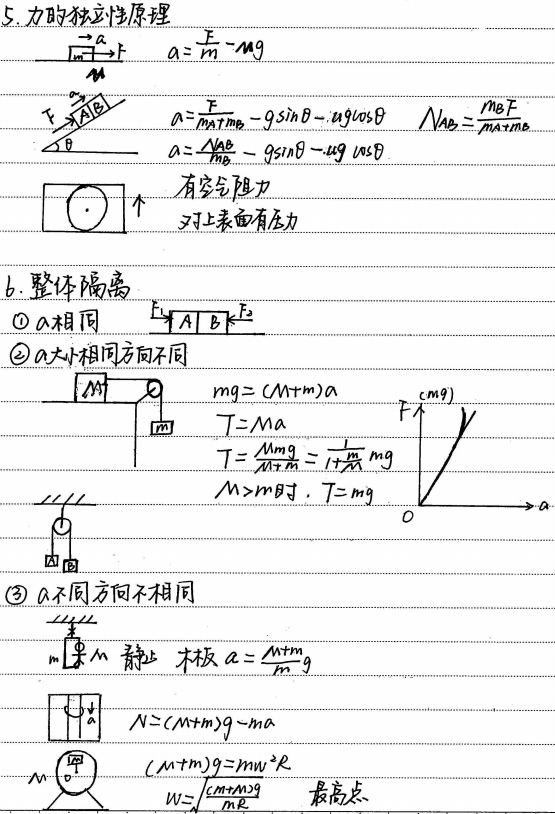 5. 力的独立性原理
a
m
F
μ
a = F/m - μg
a
F
A B
θ
a = F/(mA+mB) - gsinθ - μgcosθ
NAB = mBF/(mA+mB)
a = NAB/mB - gsinθ - μg cosθ
有空气阻力
对上表面有压力
6. 整体隔离
① a相同
F₁ A B F₂
② a大小相同方向不同
M
m
mg = (M+m)a
T = Ma
T = Mmg/(M+m) = 1/(1+m/M) mg
M>m时. T=mg
F (mg)
O
a
A B
③ a不同方向不相同
m M 静止 木板 a = (M+m)/m g
a
N = (M+m)g - ma
M
(M+m)g = mw²R
W = √((M+m)g/mR) 最高点